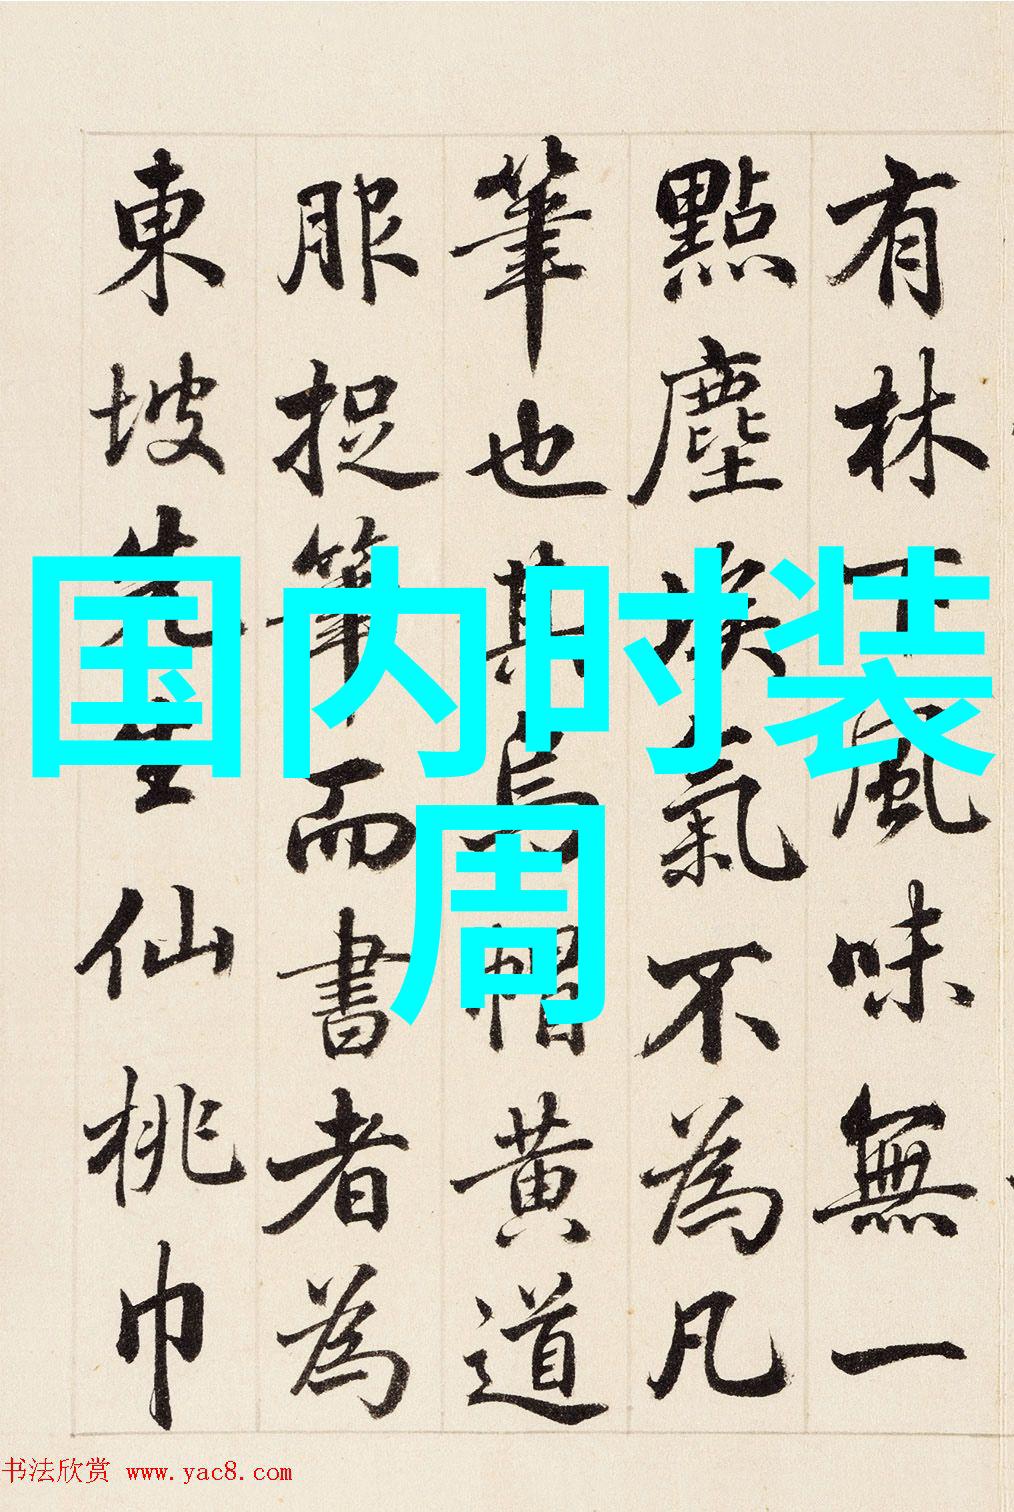 有林下風味無一
點塵埃氣不為凡
筆也其烏帽黃道
服捉筆而書者為
東坡先生仙桃巾
国内时装
周
书法欣赏 www.yac8.com